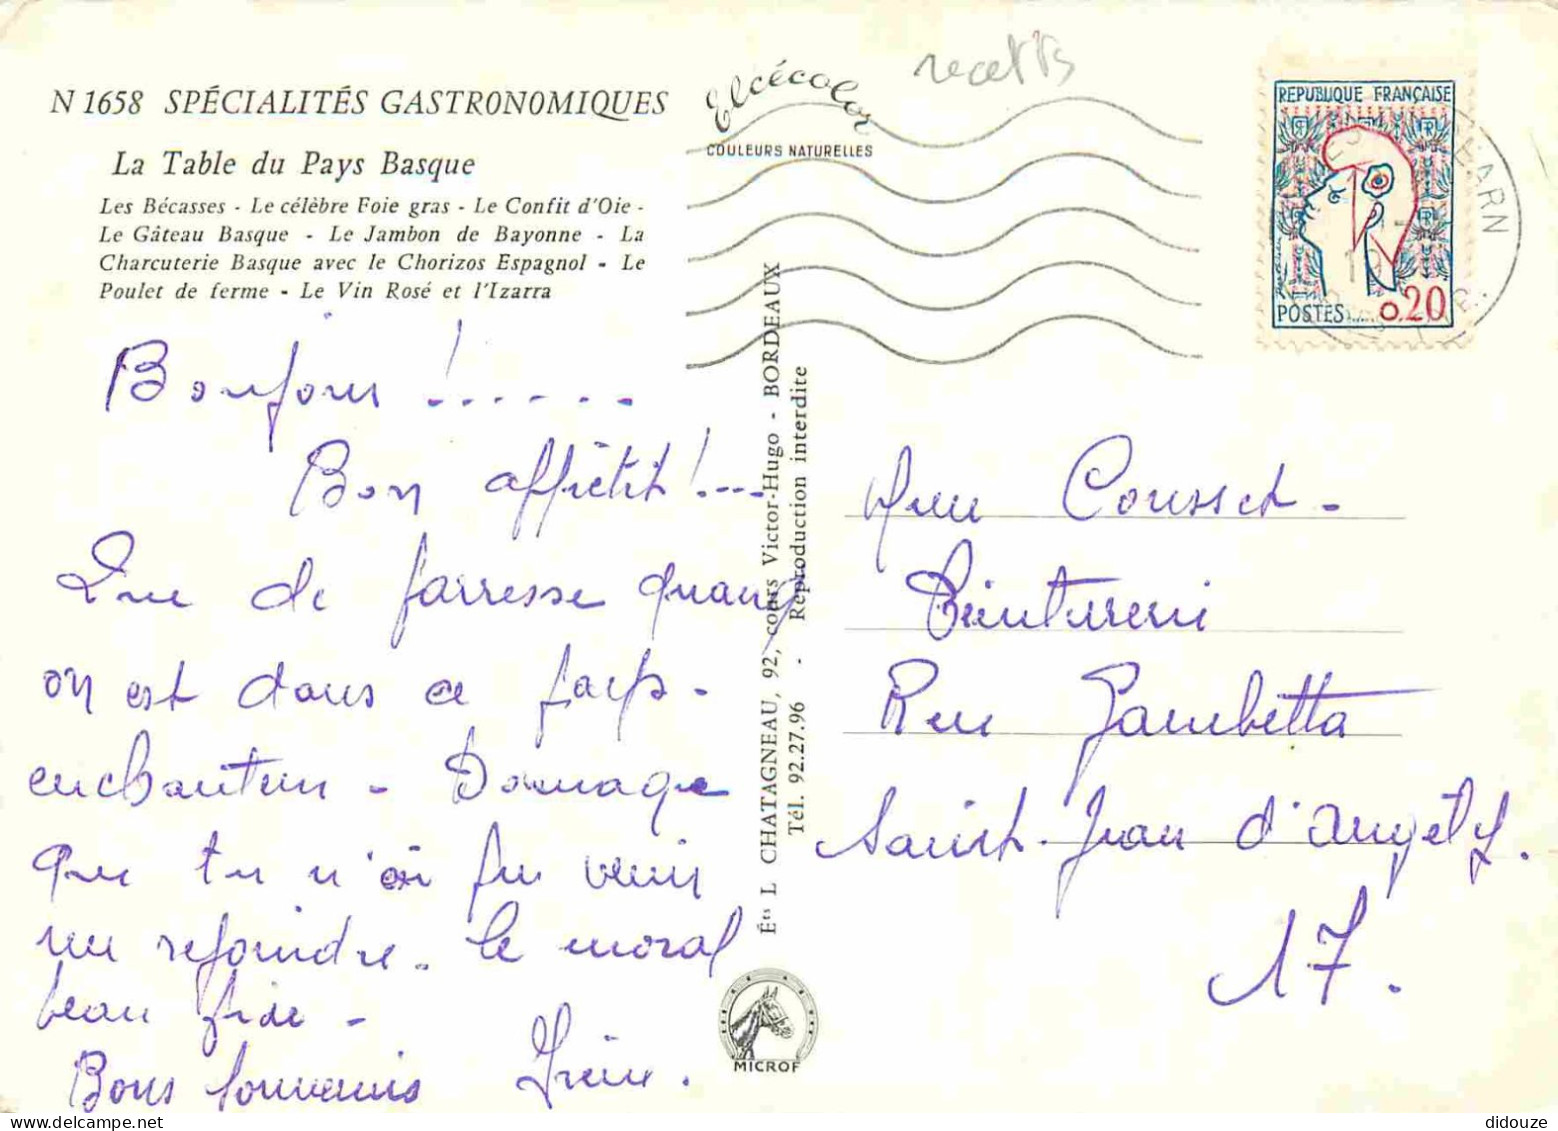 recettes
N 1658 SPÉCIALITÉS GASTRONOMIQUES
La Table du Pays Basque
Les Bécasses - Le célèbre Foie gras - Le Confit d'Oie -
Le Gâteau Basque - Le Jambon de Bayonne - La
Charcuterie Basque avec le Chorizos Espagnol - Le
Poulet de ferme - Le Vin Rosé et l'Izarra
Elcécolor
COULEURS NATURELLES
RÉPUBLIQUE FRANÇAISE
POSTES 0,20
BÉARN
Bonjour !......
Bon appétit !...
Que de paresse quand
on est dans ce pays -
enchanteur - Domage
que tu n'ai pu venir
me rejoindre. le moral
beau fixe -
Bons souvenirs Irène.
Éts L CHATAGNEAU, 92, cours Victor-Hugo - BORDEAUX
Tél. 92.27.96 - Reproduction interdite
MICROF
Mme Cousset -
Teinturerie
Rue Gambetta
Saint-Jean d'Angély.
17.
didouze